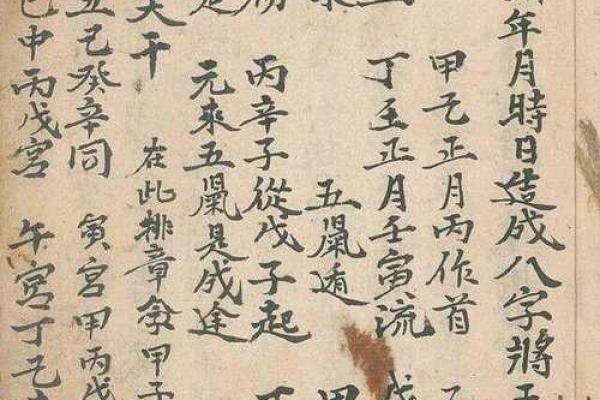 年月時日造成八字將
甲己正月丙作首
丁壬正月壬寅流 戊
五鼠遁 甲
丙辛子從戊子起
元來五鼠是成途
天干 在此排章分甲子
丑己癸辛同 寅宮甲丙戊
巳中丙戊宮 午宮丁己